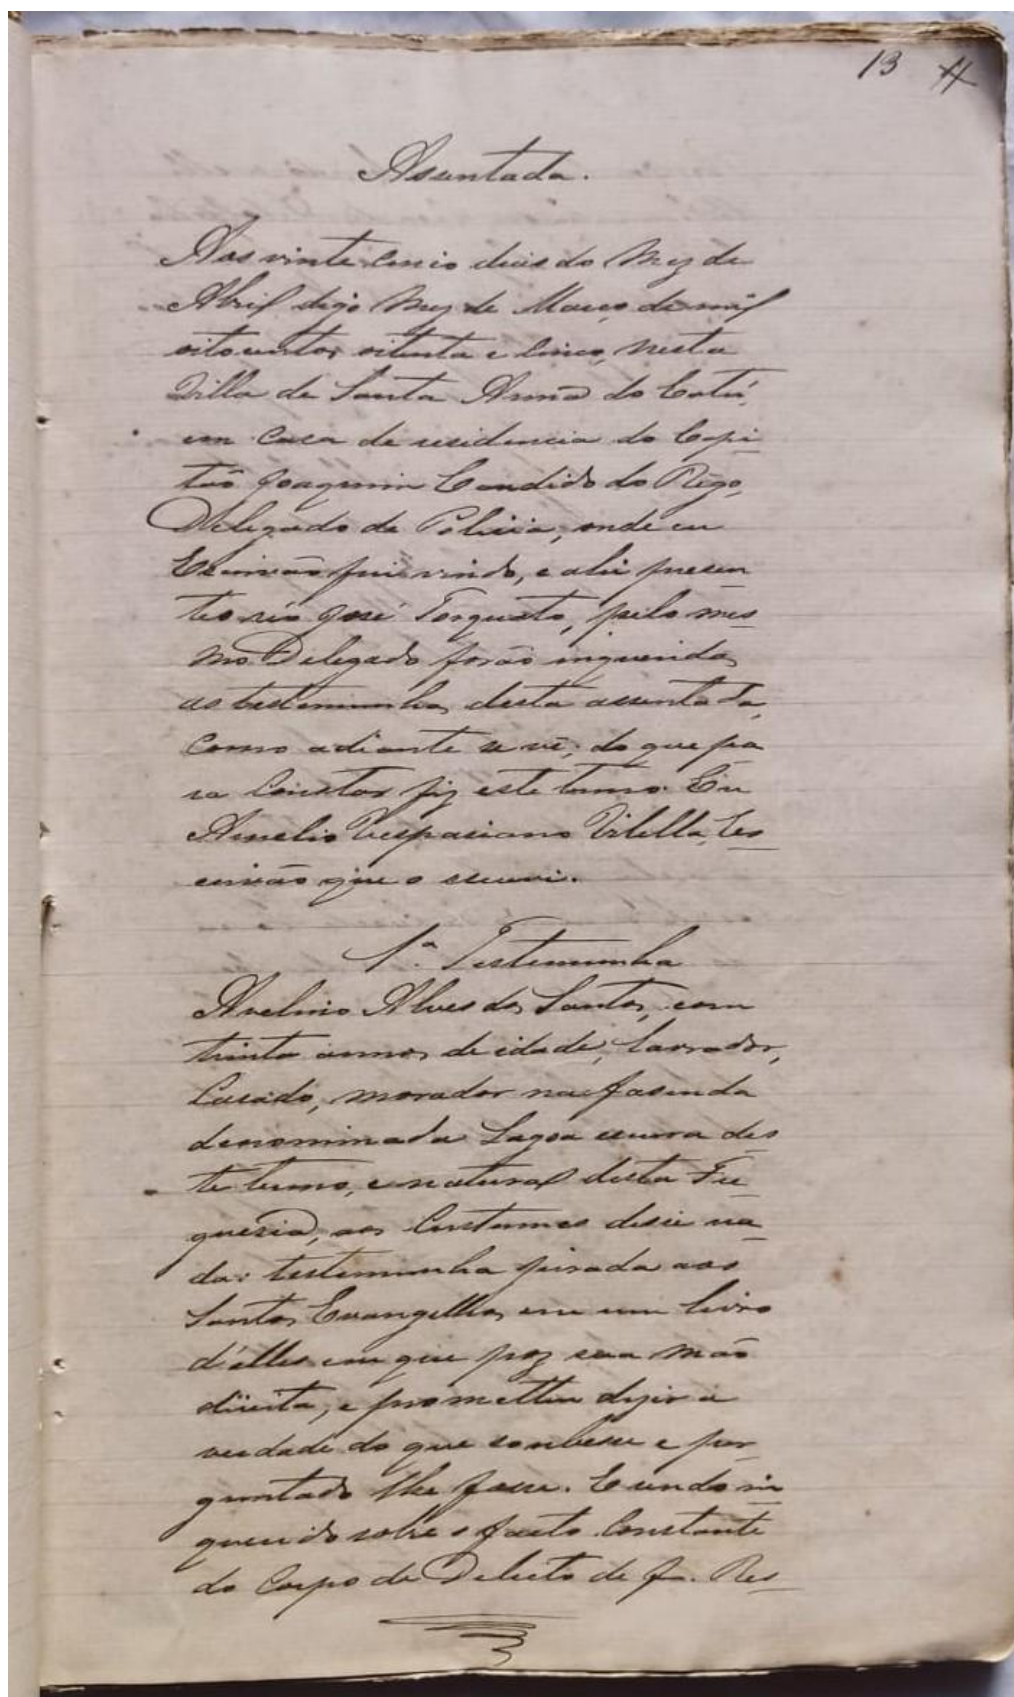 13 11
Assentada.
Aos vinte cinco dias do Mez de
Abril digo Mez de Março de mil
oitocentos oitenta e cinco, nesta
Villa de Santa Anna do Catú,
em casa de residencia do Capi
tão Joaquim Candido do Rêgo,
Delegado de Policia, onde eu
Escrivão fui vindo, e ahi presen
te o réo José Torquato, pelo mes_
mo Delegado forão inqueridas
as testemunhas desta assentada,
como adiante se vê; do que pa
ra constar fiz este termo. Eu
Aurelio Vespasiano Vilella, Es_
crivão que o escrevi.
1ª. Testemunha
Avelino Alves dos Santos, com
trinta annos de idade, lavrador,
Casado, morador na fasenda
denominada Lagoa escura des
te termo, e natural desta Fre_
guesia, aos Costumes disse na_
da: testemunha jurada aos
Santos Evangelhos em um livro
d'elles em que poz sua mão
direita, e prometteu dizer a
verdade do que soubesse e per_
guntado lhe fosse. E sendo in
querido sobre o facto constante
do Corpo de Delicto de f. Res_